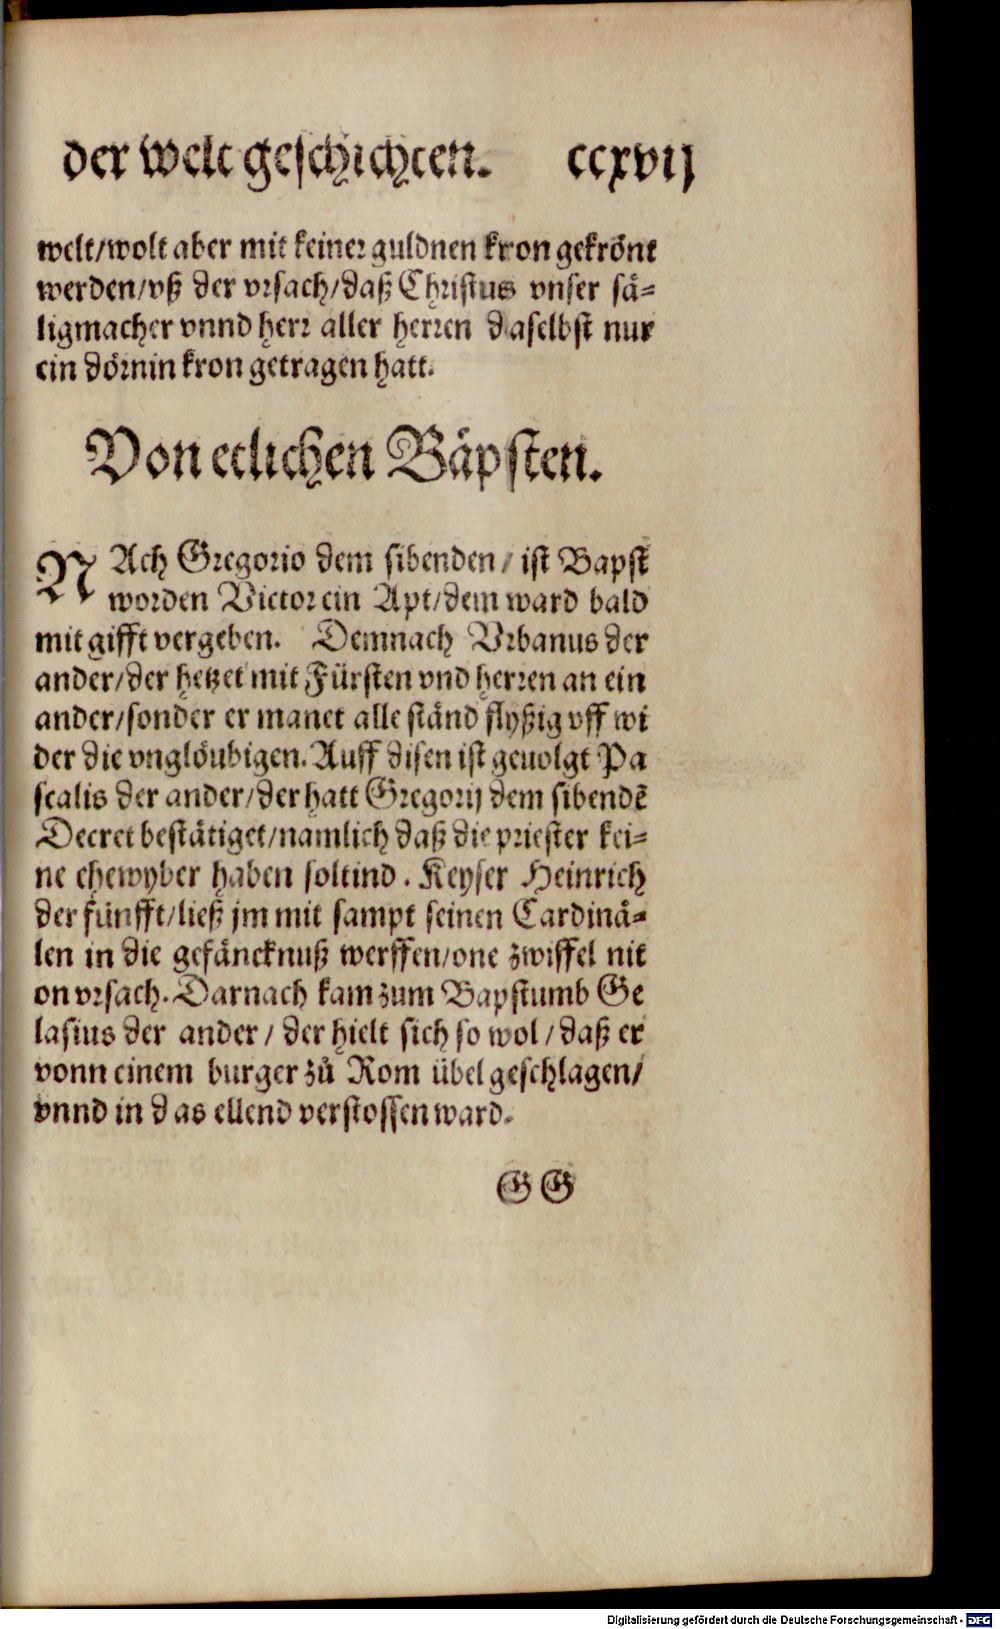 der welt geschichten. ccxvij
welt/wolt aber mit keiner guldnen kron gekrönt
werden/vß der vrsach/daß Christus vnser sä=
ligmacher vnnd herr aller herren daselbst nur
ein dörnin kron getragen hatt.
Von etlichen Bäpsten.
NAch Gregorio dem sibenden/ ist Bapst
worden Victor ein Apt/dem ward bald
mit gifft vergeben. Demnach Vrbanus der
ander/der hetzet mit Fürsten vnd herren an ein
ander/sonder er manet alle ständ flyßig vff wi
der die vnglöubigen. Auff disen ist geuolgt Pa
scalis der ander/der hatt Gregorij dem sibendē
Decret bestätiget/namlich daß die priester kei=
ne ehewyber haben soltind. Keyser Heinrich
der fünfft/ließ jm mit sampt seinen Cardinä=
len in die gefäncknuß werffen/one zwiffel nit
on vrsach. Darnach kam zum Bapstumb Ge
lasius der ander/ der hielt sich so wol/daß er
vonn einem burger zů Rom übel geschlagen/
vnnd in das ellend verstossen ward.
GG
Digitalisierung gefördert durch die Deutsche Forschungsgemeinschaft - DFG